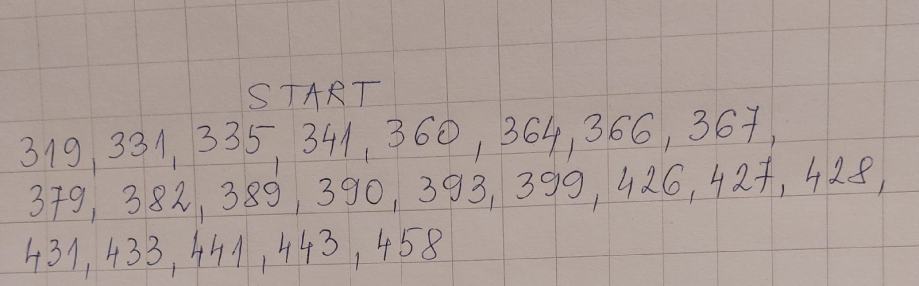 START
319, 331, 335, 341, 360, 364, 366, 367,
379, 382, 389, 390, 393, 399, 426, 427, 428,
431, 433, 441, 443, 458